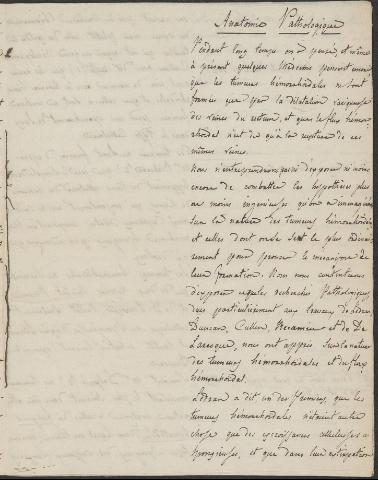 Anatomie Pathologique
Pendant long temps on a pensé, et même
à présent quelques Médecins pensent encore
que les tumeurs hémorrhoïdales ne sont
formées que par la dilatation variqueuse
des veines du rectum, et que le flux hémor
rhoidal n'est dû qu'à la rupture de ces
mêmes veines.
Nous n'entreprendrons pas ici d'exposer ni même
encore de combattre les hypothèses plus
ou moins ingénieuses qu'on a imaginées
sur la nature des tumeurs hémorrhoïdales
et celles dont on se sert le plus ordinai
rement pour prouver le mécanisme de
leur formation. Nous nous contenterons
d'exposer ce que les recherches Pathologiques,
dues particulièrement aux travaux de Ledran,
Duncan, Cullen, Recamier et de De
Laroque, nous ont appris sur la nature
des tumeurs hémorrhoïdales et du flux
hémorrhoidal.
Ledran a dit un des premiers, que les
tumeurs hémorrhoïdales n'étaient autre
chose que des excroissances celluleuses ou
spongieuses, et que dans leur extirpation